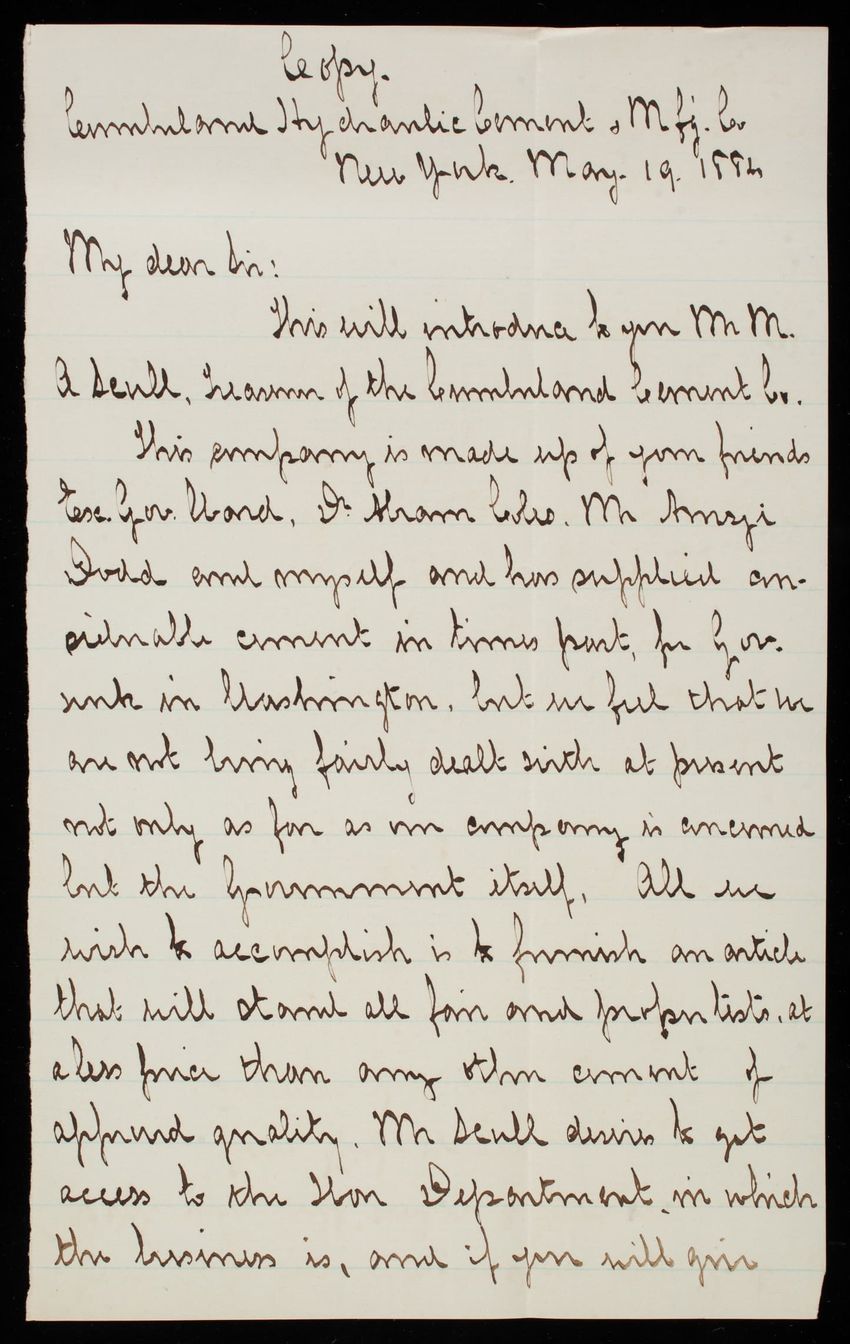 Copy.
Cumberland Hydraulic Cement & Mfg. Co
New York. May. 19. 1884
My dear Sir:
This will introduce to you Mr M.
A Scull, Treasurer of the Cumberland Cement Co.
This company is made up of your friends
Ex. Gov. Ward, Dr Abram Coles. Mr Amzi
Dodd and myself and has supplied con-
siderable cement in times past, for Gov.
work in Washington, but we feel that we
are not being fairly dealt with at present
not only as far as our company is concerned
but the Government itself, All we
wish to accomplish is to furnish an article
that will stand all fair and proper tests, at
a less price than any other cement of
approved quality. Mr Scull desires to get
access to the Hon Department, in which
the business is, and if you will give